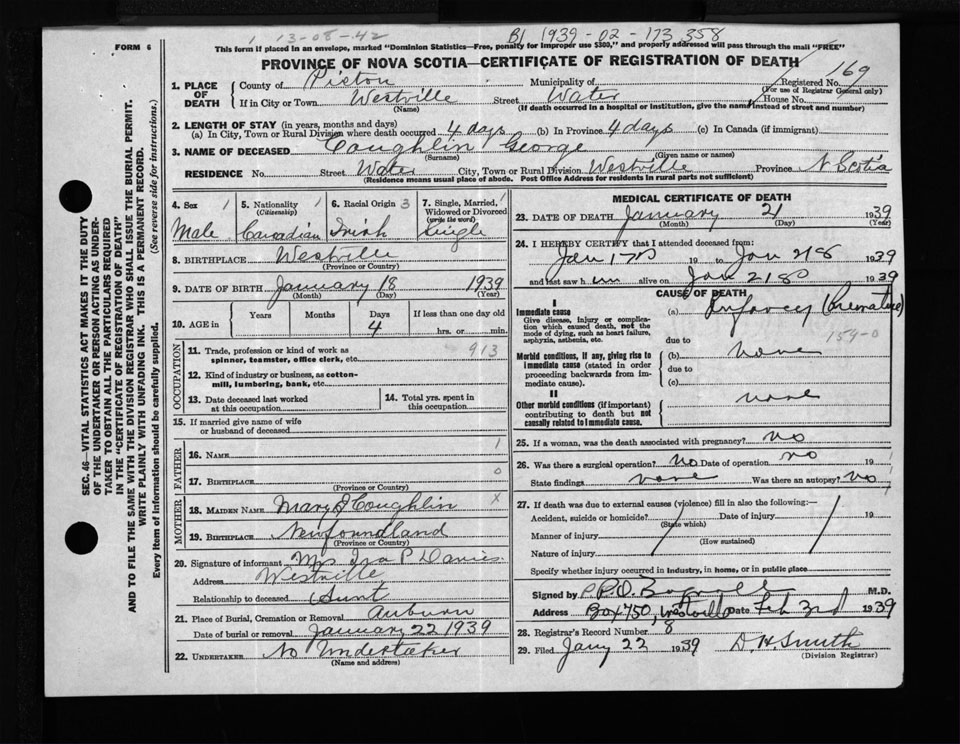 1 13-08-42 B1 1939-02-173358
FORM 6
This form if placed in an envelope, marked "Dominion Statistics—Free, penalty for improper use $300," and properly addressed will pass through the mail "FREE"
PROVINCE OF NOVA SCOTIA—CERTIFICATE OF REGISTRATION OF DEATH
1. PLACE OF DEATH
County of Pictou Municipality of Registered No. 169
(For use of Registrar General only)
If in City or Town Westville Street Water House No.
(Name) (If death occurred in a hospital or institution, give the name, instead of street and number)
2. LENGTH OF STAY (in years, months and days)
(a) In City, Town or Rural Division where death occurred 4 days (b) In Province 4 days (c) In Canada (if immigrant)
3. NAME OF DECEASED Coughlin George
(Surname) (Given name or names)
RESIDENCE No. Street Water City, Town or Rural Division Westville Province N Scotia
(Residence means usual place of abode. Post Office Address for residents in rural parts not sufficient)
4. Sex 1 5. Nationality 1 (Citizenship) 6. Racial Origin 3 7. Single, Married, Widowed or Divorced (write the word) 1
Male Canadian Irish Single
8. BIRTHPLACE Westville
(Province or Country)
9. DATE OF BIRTH January 18 1939
(Month) (Day) (Year)
10. AGE in Years Months Days If less than one day old
4 hrs. or min.
OCCUPATION
11. Trade, profession or kind of work as spinner, teamster, office clerk, etc. 913
12. Kind of industry or business, as cotton-mill, lumbering, bank, etc.
13. Date deceased last worked at this occupation
14. Total yrs. spent in this occupation
15. If married give name of wife or husband of deceased
FATHER
16. NAME 1
17. BIRTHPLACE 0
(Province or Country)
MOTHER
18. MAIDEN NAME Mary J Coughlin X
19. BIRTHPLACE Newfoundland
(Province or Country)
20. Signature of informant Mrs Ira P Davies
Address Westville
Relationship to deceased Aunt
21. Place of Burial, Cremation or Removal Auburn
Date of burial or removal January 22 1939
22. UNDERTAKER No Undertaker
(Name and address)
MEDICAL CERTIFICATE OF DEATH
23. DATE OF DEATH January 21 1939
(Month) (Day) (Year)
24. I HEREBY CERTIFY that I attended deceased from:
Jan 19 to Jan 1939
and last saw h im alive on Jan 1939
CAUSE OF DEATH
I
Immediate cause
Give disease, injury or complication which caused death, not the mode of dying, such as heart failure, asphyxia, asthenia, etc.
(a) Infancy (Premature)
159-0
due to
Morbid conditions, if any, giving rise to Immediate cause (stated in order proceeding backwards from immediate cause).
(b) none
due to
(c)
II
Other morbid conditions (if important) contributing to death but not causally related to Immediate cause.
none
25. If a woman, was the death associated with pregnancy? no
26. Was there a surgical operation? No Date of operation no 19
State findings none Was there an autopsy? no
27. If death was due to external causes (violence) fill in also the following:—
Accident, suicide or homicide? Date of injury 19
(State which)
Manner of injury
(How sustained)
Nature of injury
Specify whether injury occurred in industry, in home, or in public place
Signed by M.D.
Address Box 750, Westville Date Feb 3rd 1939
28. Registrar's Record Number 8
29. Filed Jany 22 1939 D. H. Smith
(Division Registrar)
SEC. 46—VITAL STATISTICS ACT MAKES IT THE DUTY
OF THE UNDERTAKER OR PERSON ACTING AS UNDER-
TAKER TO OBTAIN ALL THE PARTICULARS REQUIRED
IN THE "CERTIFICATE OF REGISTRATION OF DEATH"
AND TO FILE THE SAME WITH THE DIVISION REGISTRAR WHO SHALL ISSUE THE BURIAL PERMIT.
WRITE PLAINLY WITH UNFADING INK. THIS IS A PERMANENT RECORD.
Every item of information should be carefully supplied. (See reverse side for instructions.)